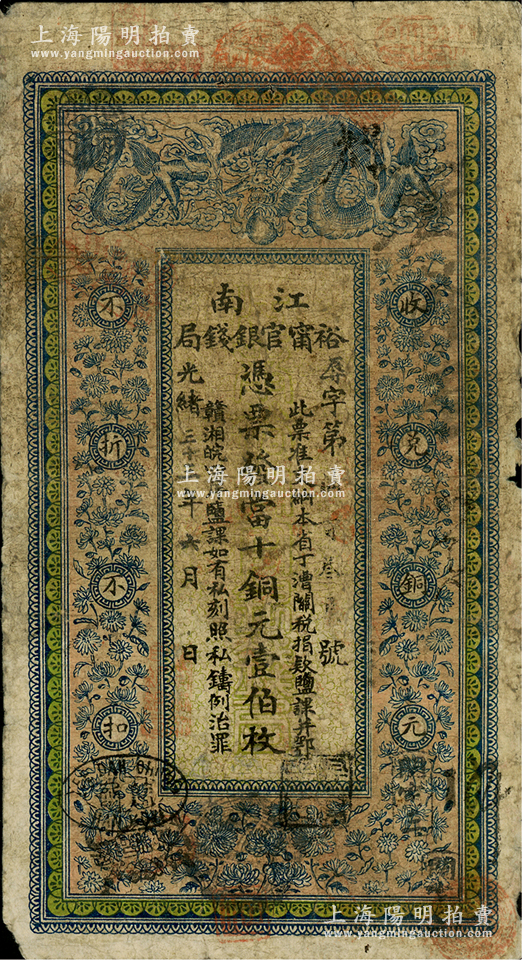 上海陽明拍賣
www.yangmingauction.com
江南
裕甯官銀錢局
收兌銅元
不折不扣
字第
號
憑票發當十銅元壹佰枚
此票准
本省丁漕關稅捐款鹽課并鄰
贛湘皖
鹽課如有私刻照私鑄例治罪
光緒三十
年六月
日
上海陽明拍賣
www.yangmingauction.com
上海陽明拍賣
www.yangmingauction.com